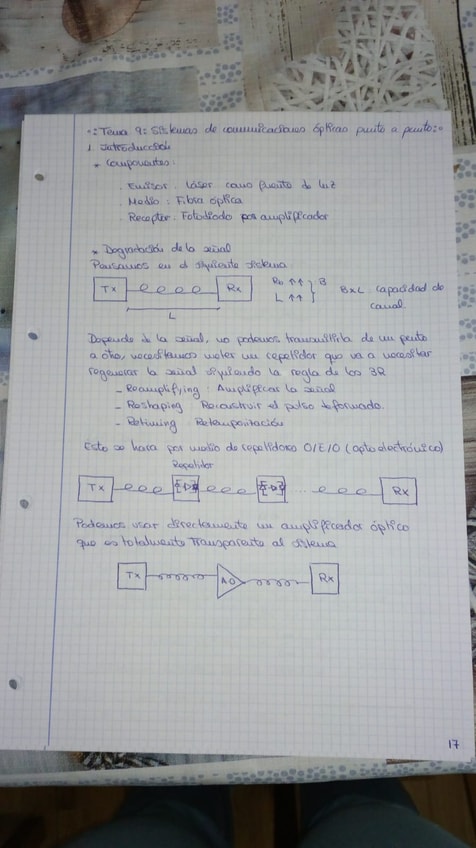 -: Tema 9: Sistemas de comunicaciones ópticas punto a punto:-
1. Introducción
* Componentes:
. Emisor: Láser como fuente de luz
. Medio: Fibra óptica
. Receptor: Fotodiodo por amplificador
* Degradación de la señal
Pensamos en el siguiente sistema
Tx Rx Rb ↑↑ B B×L capacidad de
L ↑↑ canal.
L
Depende de la señal, no podemos transmitirla de un punto
a otro, necesitamos meter un repetidor que va a necesitar
regenerar la señal siguiendo la regla de las 3R
- Reamplifying: Amplificar la señal
- Reshaping: Reconstruir el pulso deformado.
- Retiming: Retemporización
Esto se hara por medio de repetidores O/E/O (optoelectrónico)
Repetidor
Tx ... Rx
Podemos usar directamente un amplificador óptico
que es totalmente transparente al sistema
Tx AO Rx
17